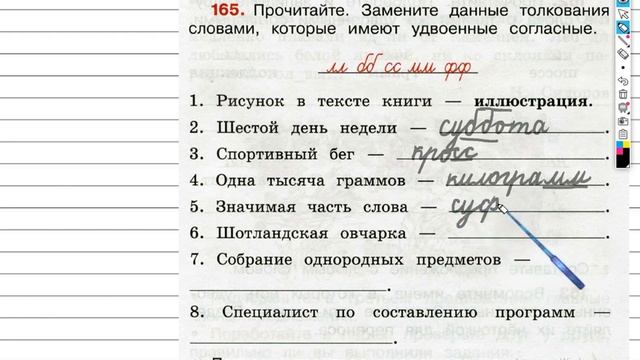 165. Прочитайте. Замените данные толкования
словами, которые имеют удвоенные согласные.
лл бб сс мм фф
1. Рисунок в тексте книги — иллюстрация.
2. Шестой день недели — суббота.
3. Спортивный бег — кросс.
4. Одна тысяча граммов — килограмм.
5. Значимая часть слова — суф.
6. Шотландская овчарка — .
7. Собрание однородных предметов —
.
8. Специалист по составлению программ —
.